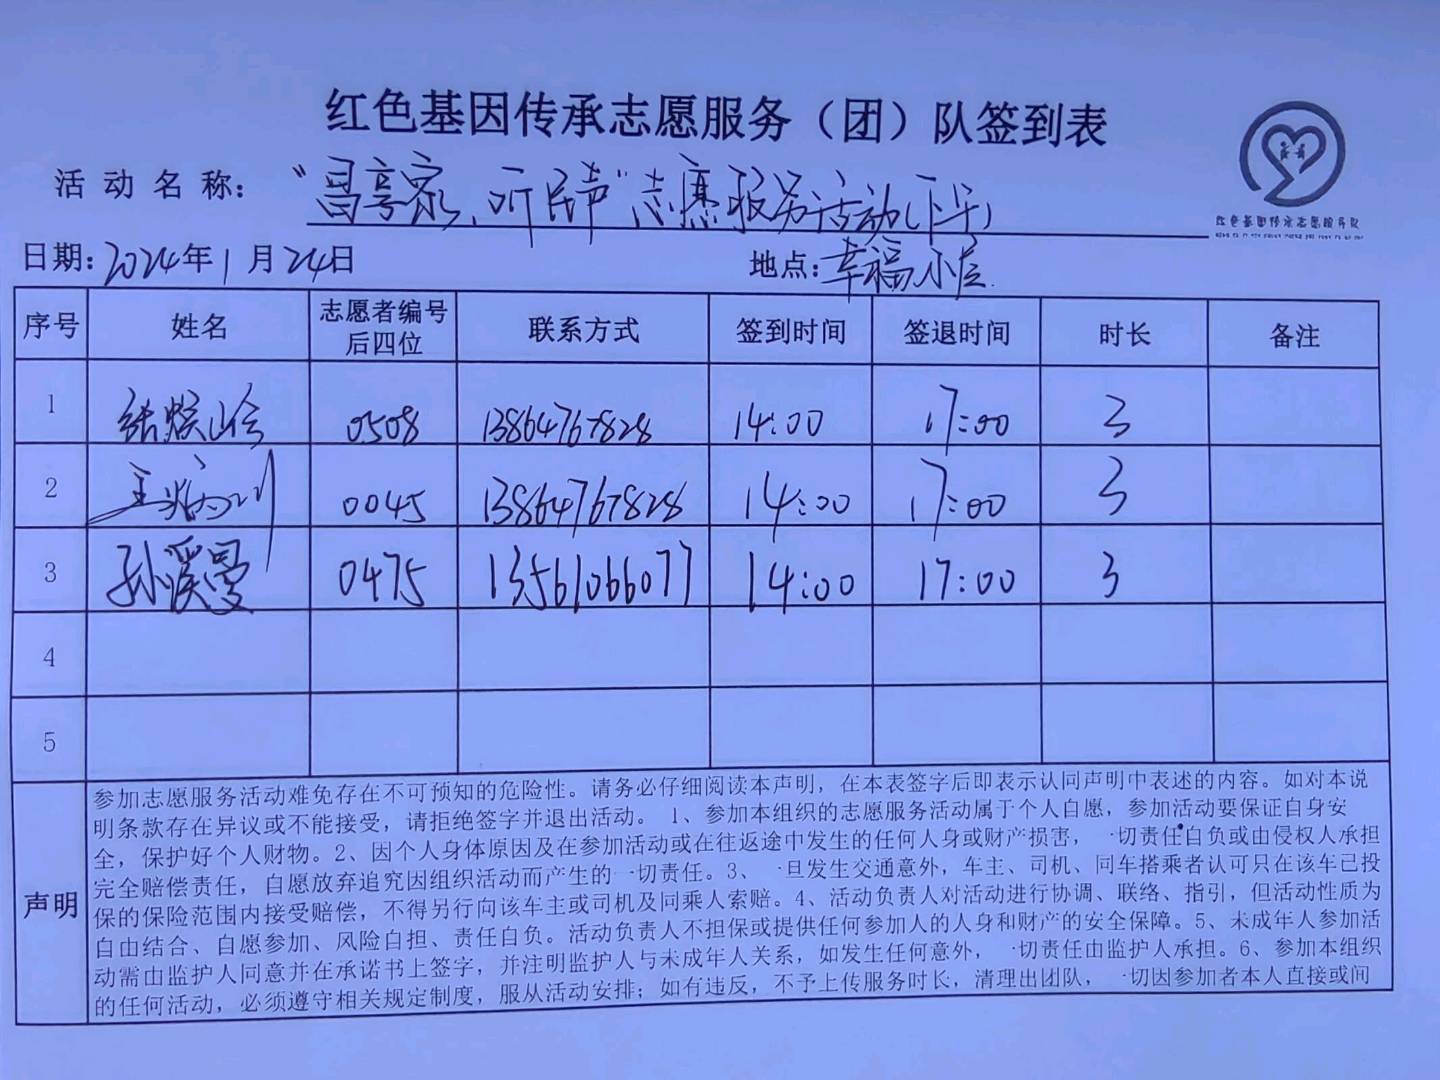 红色基因传承志愿服务（团）队签到表
活动名称：“昌亨家、听民声”志愿服务活动(下午)
红色基因传承志愿服务队
日期：2024年1月24日 地点：幸福小屋
序号 姓名 志愿者编号后四位 联系方式 签到时间 签退时间 时长 备注
1 0508 13864767828 14:00 17:00 3
2 0045 13864767828 14:00 17:00 3
3 孙溪曼 0475 13561066077 14:00 17:00 3
4
5
声明
参加志愿服务活动难免存在不可预知的危险性。请务必仔细阅读本声明，在本表签字后即表示认同声明中表述的内容。如对本说
明条款存在异议或不能接受，请拒绝签字并退出活动。 1、参加本组织的志愿服务活动属于个人自愿，参加活动要保证自身安
全，保护好个人财物。2、因个人身体原因及在参加活动或在往返途中发生的任何人身或财产损害，一切责任自负或由侵权人承担
完全赔偿责任，自愿放弃追究因组织活动而产生的一切责任。3、一旦发生交通意外，车主、司机、同车搭乘者认可只在该车已投
保的保险范围内接受赔偿，不得另行向该车主或司机及同乘人索赔。4、活动负责人对活动进行协调、联络、指引，但活动性质为
自由结合、自愿参加、风险自担、责任自负。活动负责人不担保或提供任何参加人的人身和财产的安全保障。5、未成年人参加活
动需由监护人同意并在承诺书上签字，并注明监护人与未成年人关系，如发生任何意外，一切责任由监护人承担。6、参加本组织
的任何活动，必须遵守相关规定制度，服从活动安排；如有违反，不予上传服务时长，清理出团队，一切因参加者本人直接或间